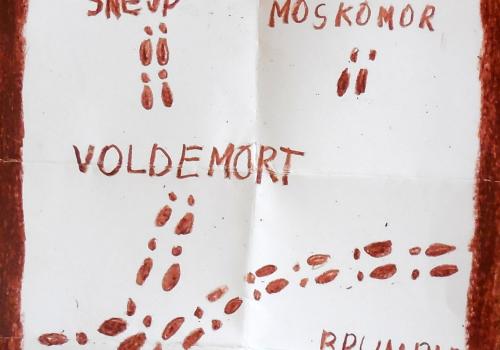 SNEJP MOSKOMOR
VOLDEMORT